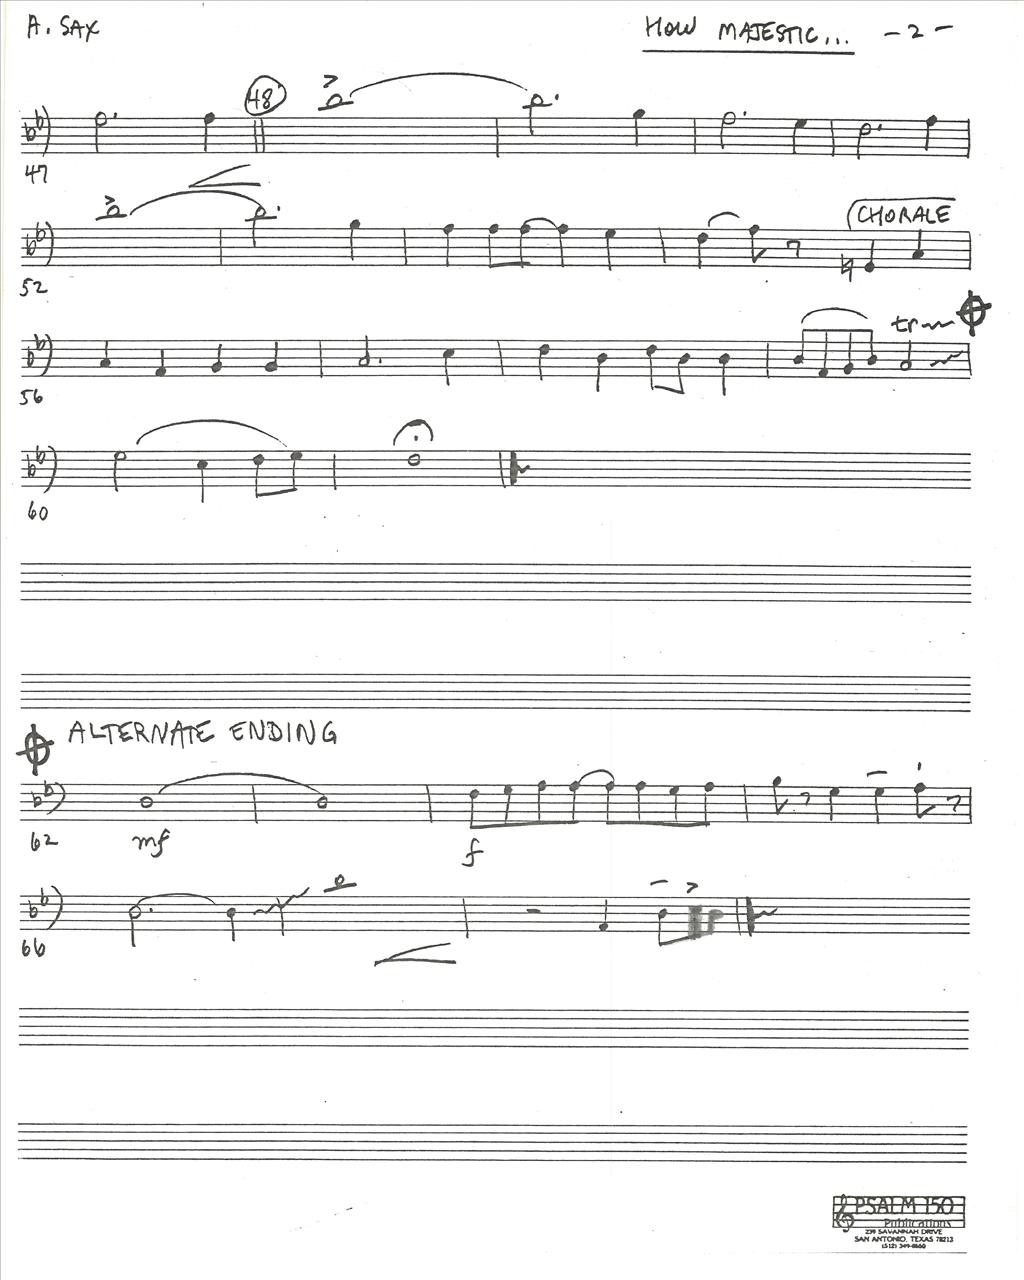 A. SAX
HOW MAJESTIC... -2-
48
47
CHORALE
52
tr
56
60
ALTERNATE ENDING
62 mf f
66
PSALM 150
Publications
239 SAVANNAH DRIVE
SAN ANTONIO, TEXAS 78213
(512) 349-8660